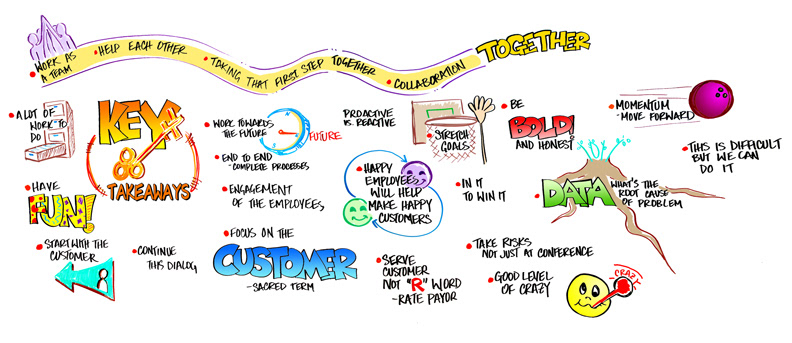 TOGETHER
• WORK AS
A TEAM
• HELP EACH OTHER
• TAKING THAT FIRST STEP TOGETHER
• COLLABORATION
• A LOT OF
WORK TO
DO
KEY
TAKEAWAYS
• HAVE
FUN!
• START WITH THE
CUSTOMER
• CONTINUE
THIS DIALOG
• WORK TOWARDS
THE FUTURE
FUTURE
• END TO END
- COMPLETE PROCESSES
• ENGAGEMENT
OF THE EMPLOYEES
• FOCUS ON THE
CUSTOMER
- SACRED TERM
PROACTIVE
IS REACTIVE
• STRETCH
GOALS
• HAPPY
EMPLOYEES
WILL HELP
MAKE HAPPY
CUSTOMERS
• SERVE
CUSTOMER
NOT "R" WORD
- RATE PAYOR
• BE
BOLD!
AND HONEST
• IN IT
TO WIN IT
• TAKE RISKS
NOT JUST AT CONFERENCE
• GOOD LEVEL
OF CRAZY
CRAZY
• MOMENTUM
- MOVE FORWARD
• DATA
WHAT'S THE
ROOT CAUSE
OF PROBLEM
• THIS IS DIFFICULT
BUT WE CAN
DO IT